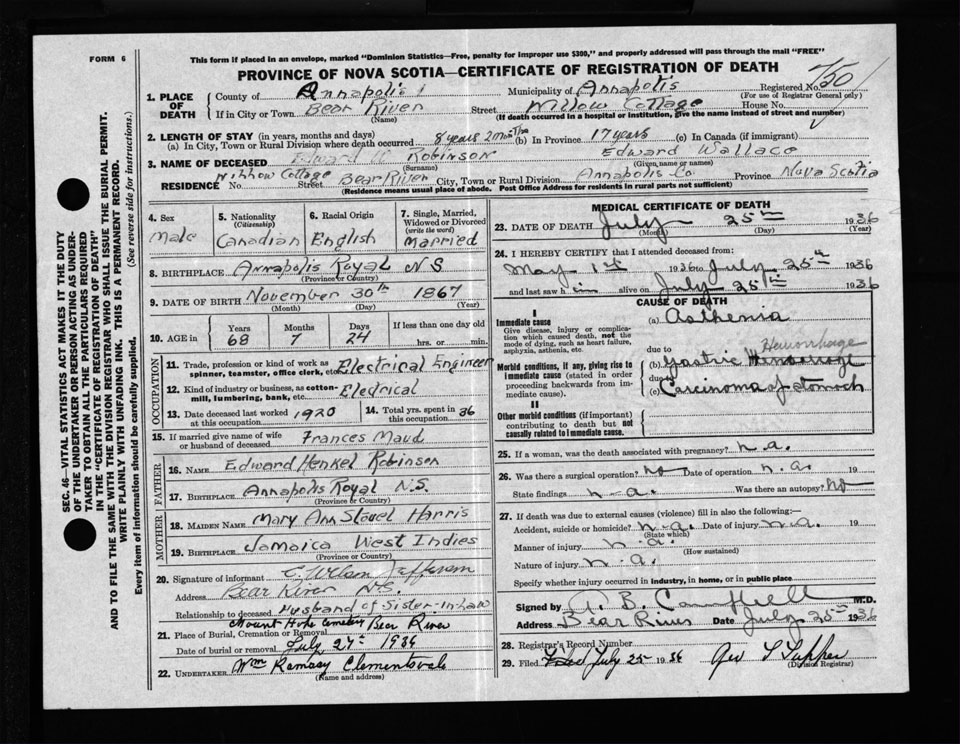 FORM 6
This form if placed in an envelope, marked "Dominion Statistics—Free, penalty for improper use $300," and properly addressed will pass through the mail "FREE"
PROVINCE OF NOVA SCOTIA—CERTIFICATE OF REGISTRATION OF DEATH
1. PLACE OF DEATH
County of Annapolis Municipality of Annapolis Registered No. 750
(For use of Registrar General only)
If in City or Town Bear River Street Willow Cottage House No.
(Name) (If death occurred in a hospital or institution, give the name instead of street and number)
2. LENGTH OF STAY (in years, months and days)
(a) In City, Town or Rural Division where death occurred 8 years 2 months (b) In Province 17 years (c) In Canada (if immigrant)
3. NAME OF DECEASED Edward W Robinson Edward Wallace
(Surname) (Given name or names)
RESIDENCE No. Willow Cottage Street Bear River City, Town or Rural Division Annapolis Co. Province Nova Scotia
(Residence means usual place of abode. Post Office Address for residents in rural parts not sufficient)
4. Sex Male
5. Nationality (Citizenship) Canadian
6. Racial Origin English
7. Single, Married, Widowed or Divorced (write the word) Married
8. BIRTHPLACE Annapolis Royal N S
(Province or Country)
9. DATE OF BIRTH November 30th 1867
(Month) (Day) (Year)
10. AGE in Years 68 Months 7 Days 24 If less than one day old hrs. or min.
OCCUPATION
11. Trade, profession or kind of work as spinner, teamster, office clerk, etc. Electrical Engineer
12. Kind of industry or business, as cotton-mill, lumbering, bank, etc. Electrical
13. Date deceased last worked at this occupation 1920 14. Total yrs. spent in this occupation 36
15. If married give name of wife or husband of deceased Frances Maud
FATHER
16. NAME Edward Henkel Robinson
17. BIRTHPLACE Annapolis Royal N.S.
(Province or Country)
MOTHER
18. MAIDEN NAME Mary Ann Harris
19. BIRTHPLACE Jamaica West Indies
(Province or Country)
20. Signature of informant
Address Bear River N.S.
Relationship to deceased Husband of Sister-in-law
21. Place of Burial, Cremation or Removal Mount Hope Cemetery Bear River
Date of burial or removal July 27th 1936
22. UNDERTAKER Wm Ramsay Clementsvale
(Name and address)
MEDICAL CERTIFICATE OF DEATH
23. DATE OF DEATH July 25th 1936
(Month) (Day) (Year)
24. I HEREBY CERTIFY that I attended deceased from:
May 1st 1936 to July 25th 1936
and last saw him alive on July 25th 1936
CAUSE OF DEATH
I
Immediate cause
Give disease, injury or complication which caused death, not the mode of dying, such as heart failure, asphyxia, asthenia, etc.
(a) Asthenia
due to Hemorrhage
Morbid conditions, if any, giving rise to immediate cause (stated in order proceeding backwards from immediate cause).
(b) Gastric
due to
(c) Carcinoma of stomach
II
Other morbid conditions (if important) contributing to death but not causally related to immediate cause.
25. If a woman, was the death associated with pregnancy? n.a.
26. Was there a surgical operation? no Date of operation n.a. 19
State findings n.a. Was there an autopsy? no
27. If death was due to external causes (violence) fill in also the following:
Accident, suicide or homicide? n.a. Date of injury n.a. 19
(State which)
Manner of injury n.a.
(How sustained)
Nature of injury n.a.
Specify whether injury occurred in industry, in home, or in public place
Signed by A. B. Campbell M.D.
Address Bear River Date July 25th 1936
28. Registrar's Record Number
29. Filed July 25 1936
(Division Registrar)
SEC. 46—VITAL STATISTICS ACT MAKES IT THE DUTY
OF THE UNDERTAKER OR PERSON ACTING AS UNDER-
TAKER TO OBTAIN ALL THE PARTICULARS REQUIRED
IN THE "CERTIFICATE OF REGISTRATION OF DEATH"
AND TO FILE THE SAME WITH THE DIVISION REGISTRAR WHO SHALL ISSUE THE BURIAL PERMIT.
WRITE PLAINLY WITH UNFADING INK. THIS IS A PERMANENT RECORD.
Every item of information should be carefully supplied. (See reverse side for instructions.)